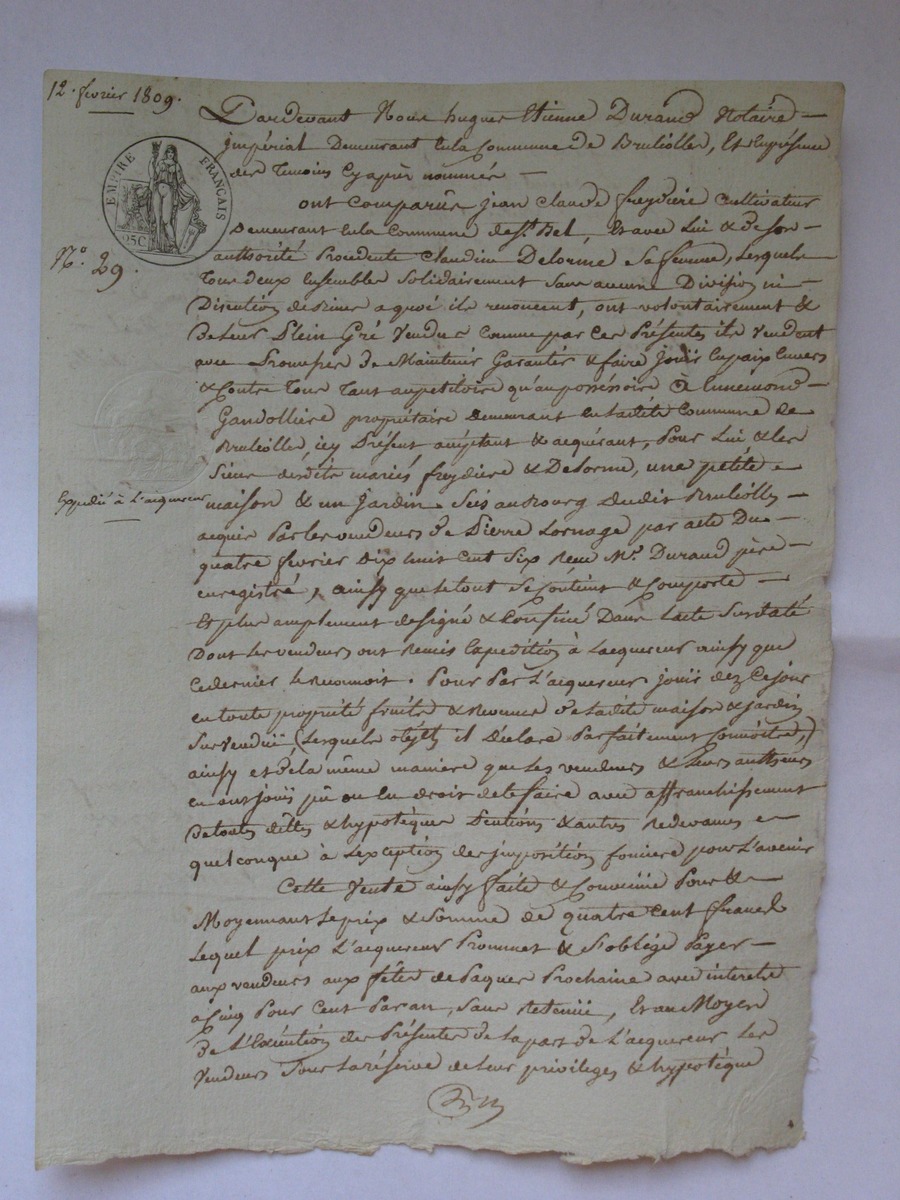 12. février 1809.
EMPIRE FRANÇAIS
25 C
N.° 29.
Expedié à L'aquereur
Pardevant Nous hugues Etienne Durand Notaire
impérial Demeurant En la Commune de Brulliolles, Et En présence
des Temoins Cy après nommés
ont comparus jean Claude freydiere Cultivateur
Demeurant En la Commune de St. Bel, Et avec Lui & de son
authorité Procedente Claudine Delorme sa femme, Lesquels
Tous deux Ensembles Solidairement Sans aucune Division ni
Discution de Biens a quoi ils renoncent, ont volontairement &
De Leur Plein Gré Vendus Comme par Ces Présentes ils Vendent
avec Promesses De Maintenir Garantir & faire jouir En paix Envers
& Contre Tous Tant au petitoire qu'au possessoire à Ennemond
Gandolliere propriétaire Demeurant En Ladite Commune de
Brulliolles, icy Présent acceptant & acquérant, Pour Lui & les
Siens desdits mariés freydiere & Delorme, une petite
maison & un jardin Sis au Bourg dudit Brulliolles
acquis Par les vendeurs de Pierre Lornage par acte Du
quatre février Dix huit cent Six Reçu Me. Durand père
enregistré, ainssy que le tout Se Contient & Comporte
Et plus amplement designé & Confiné Dans L'acte Susdaté
Dont Les vendeurs ont Remis Expedition à L'acquereur ainssy que
Ce dernier Le Reconnoit. Pour Par L'aquereur jouir dez Ce jour
en toute propriété fruits & Revenus de Ladite maison & jardin
Sus vendus (Lesquels objets il Declare Parfaitement Connoitre,)
ainssy et de la même maniere que Les vendeurs & Leurs autheurs
en ont joüi pû ou Eu droit de le faire avec affranchissement
De toutes dêttes & hypotèques Pentions & autres Redevances
quelconque à L'exception des jmposition fonciere pour L'avenir
Cette Vente ainssy faite & Convenüe Pour &
Moyennant Le prix & Somme de quatre Cent francs
Lequel prix L'acquereur Prommet & S'oblige Payer
aux vendeurs aux fêtes de Paques Prochaine avec interets
a Cinq Pour Cent Par an, Sans Retenüe, Et au Moyen
De L'Exécution des Présentes De la part de L'acquereur Les
Vendeurs Sous La réserve de Leur privileges & hypotèque